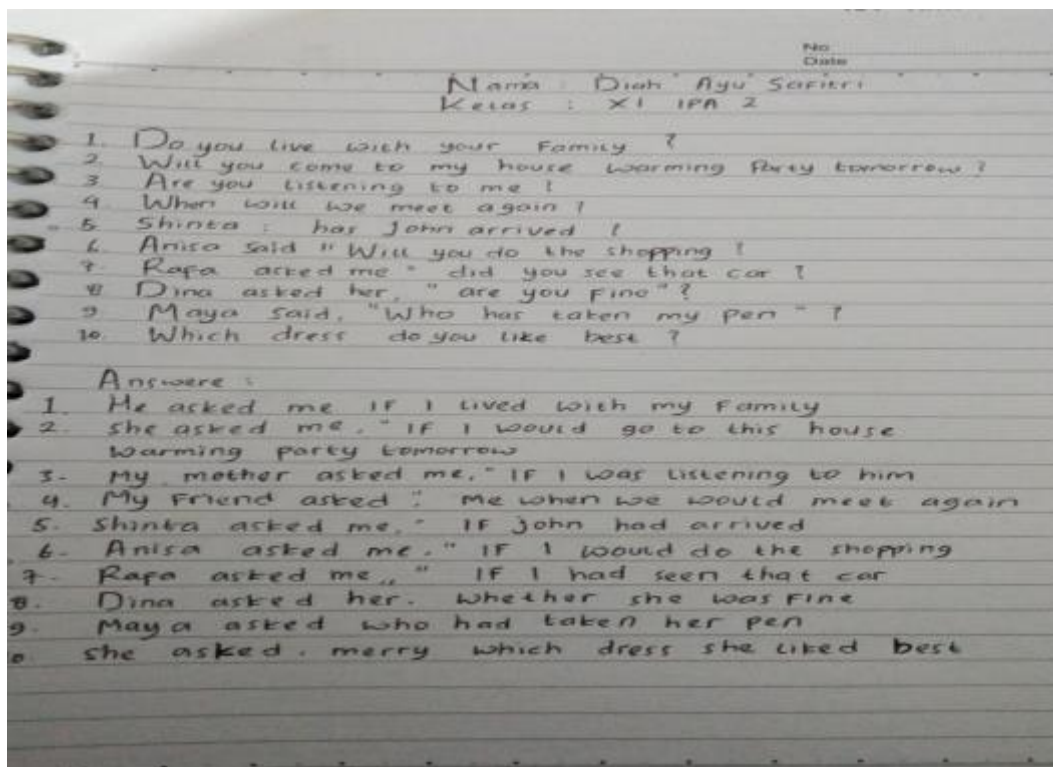 No
Date
Nama : Diah Ayu Safitri
Kelas : XI IPA 2
1. Do you live with your Family ?
2. Will you come to my house warming Party tomorrow ?
3 Are you listening to me !
4 When will we meet again ?
5 Shinta : has John arrived ?
6 Anisa said " Will you do the shopping !
7 Rafa asked me " did you see that car ?
8 Dina asked her, " are you Fine " ?
9 Maya said, "Who has taken my pen " ?
10. Which dress do you like best ?
Answere :
1. He asked me IF I lived with my Family
2. She asked me. " IF I would go to this house
warming party tomorrow
3- My mother asked me. " IF I was listening to him
4. My Friend asked : me when we would meet again
5. Shinta asked me. " IF John had arrived
6- Anisa asked me. " IF I would do the shopping
7- Rafa asked me,, " IF I had seen that car
8. Dina asked her. whether she was Fine
9. Maya asked who had taken her pen
0. she asked. merry which dress she liked best